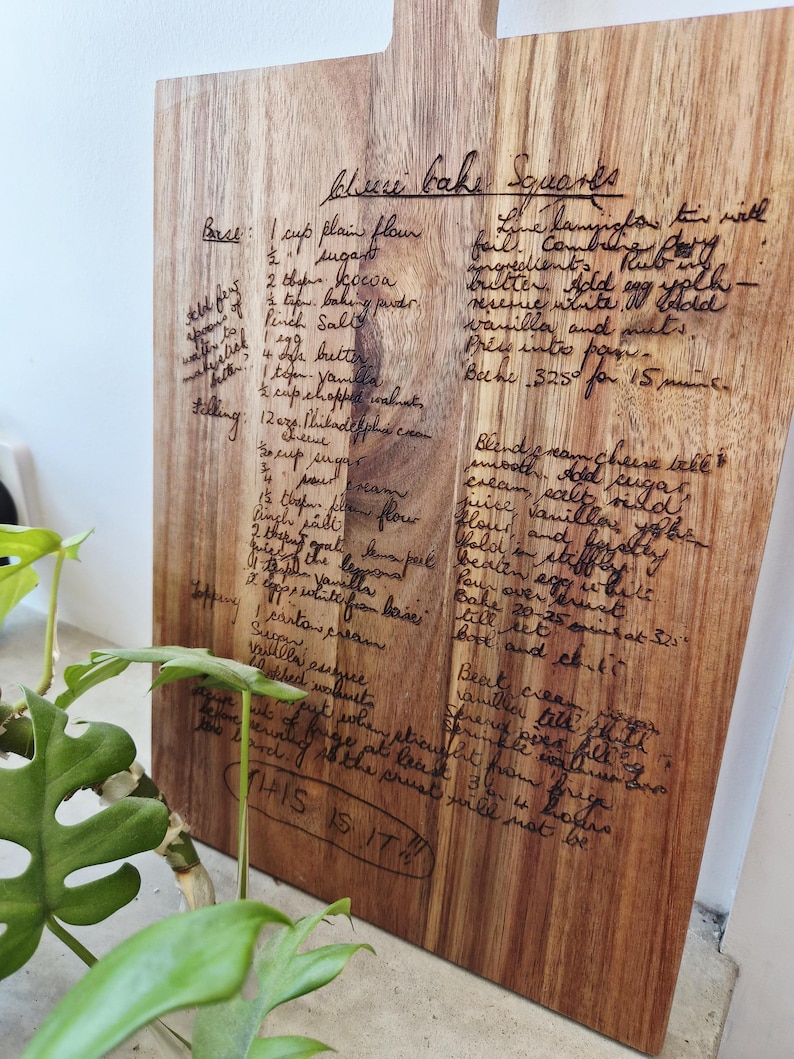 Cheese Cake Squares
Base: 1 cup plain flour
½ " sugar
2 tbspns. cocoa
½ tspn. baking pwdr.
Pinch Salt
1 egg
4 ozs. butter
1 tspn. vanilla
½ cup chopped walnuts
Add few
spoons of
water to
make stick
better.
Line lamington tin with
foil. Combine dry
ingredients. Rub in
butter. Add egg yolk —
reserve white. Add
vanilla and nuts
Press into pan.
Bake 325° for 15 mins.
Filling: 12 ozs. Philadelphia cream
cheese
cup sugar
¾ " sour cream
1½ tbspn. plain flour
Pinch salt
2 tbspns grated lemon peel
Juice of the lemons
1 tspn vanilla
2 eggs & white from base
Blend cream cheese till
smooth. Add sugar,
cream, salt, rind
juice, vanilla, yolks
flour and lastly
fold in stiffly
beaten egg white
Pour over crust
Bake 20-25 mins at 325°
till set
Cool and chill
Topping 1 carton cream
Sugar
Vanilla essence
Chopped walnuts
Beat cream
vanilla till thick
Spread over filling
Sprinkle walnuts
cut when straight from fridge
out of fridge at least 3 or 4 hours
before serving as the crust will not be
too hard.
THIS IS IT!!!